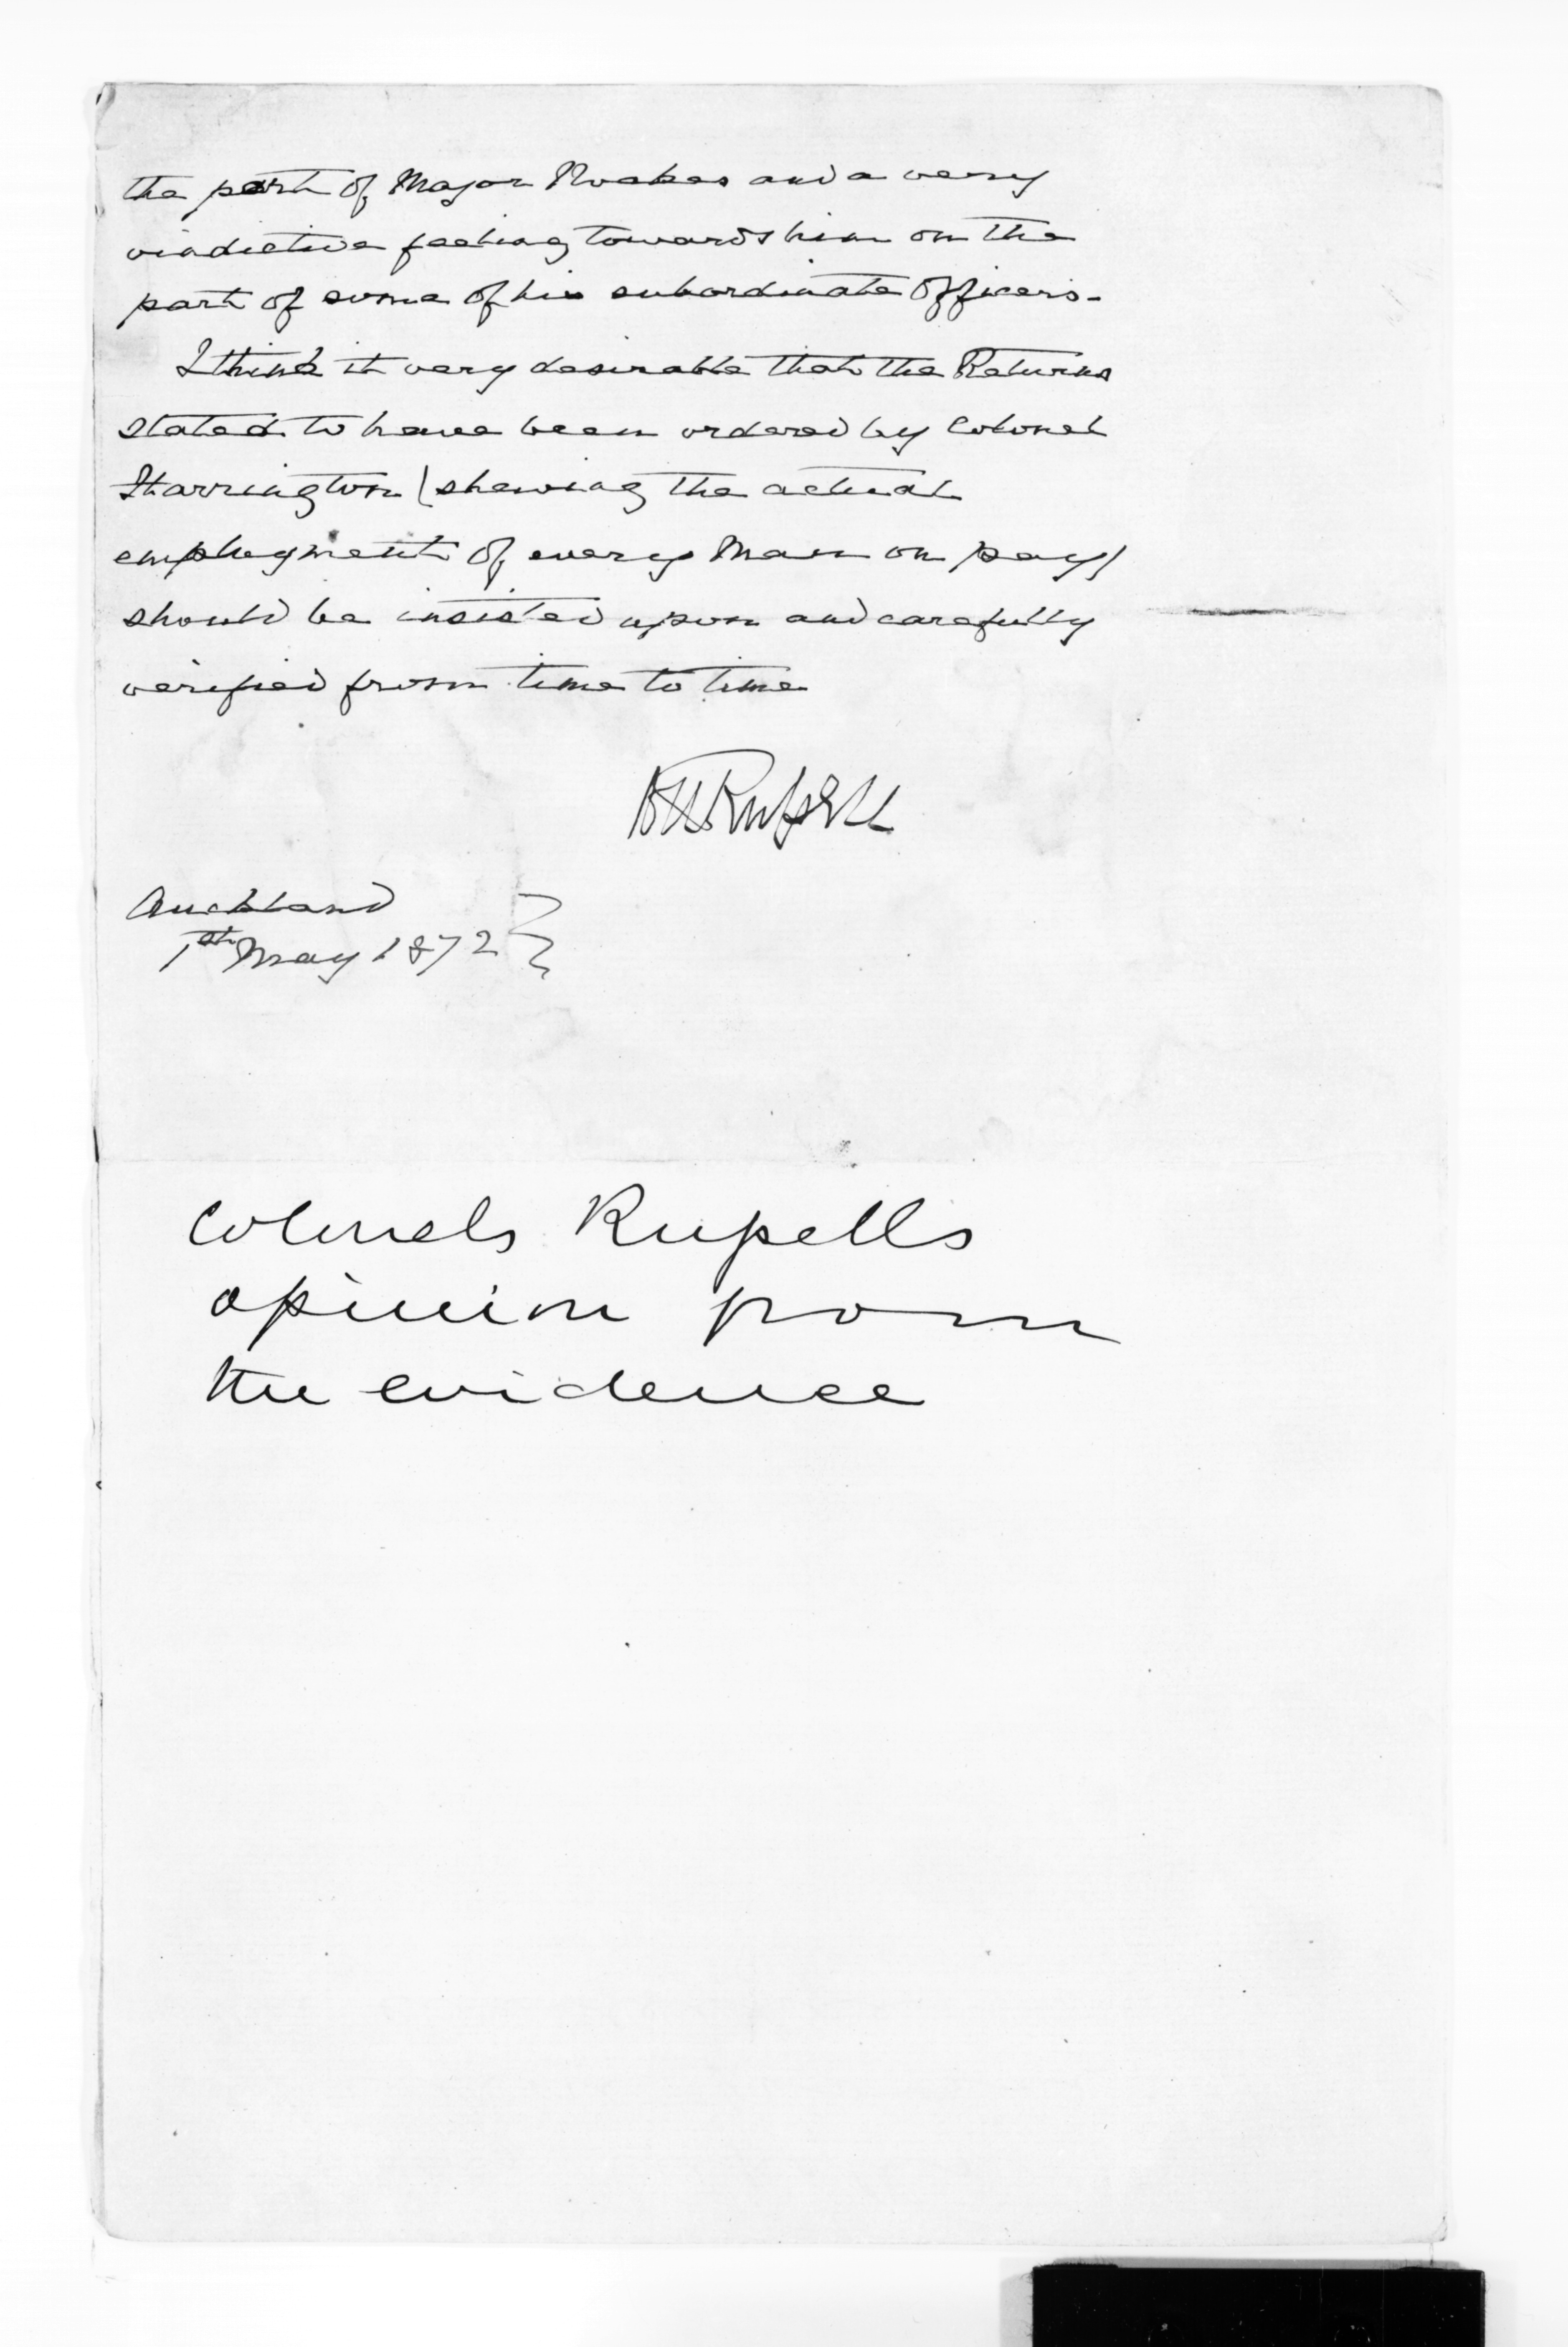 the part of Major Roakes and a very
vindictive feeling towards him on the
part of some of his subordinate Officers -
I think it very desirable that the Returns
stated to have been ordered by Colonel
Harrington (shewing the actual
employment of every Man on pay)
should be insisted upon and carefully
verified from time to time
Russell
Auckland
1st May 1872
Colonels Russells
opinion from
the evidence